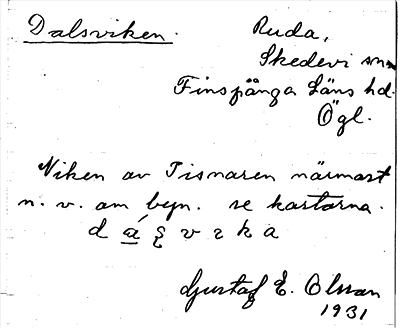 Dalsviken.
Ruda,
Skedevi sn
Finspånga Läns hd.
Ögl.
Viken av Tisnaren närmast
n. v. om byn. se kartorna.
Gustaf E. Olsson
1931